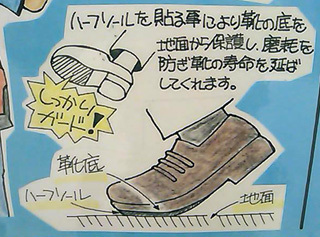 ハーフソールを貼る事により靴の底を
地面から保護し、磨耗を
防ぎ靴の寿命を延ば
してくれます。
しっかり
ガード!
靴底
ハーフソール
地面